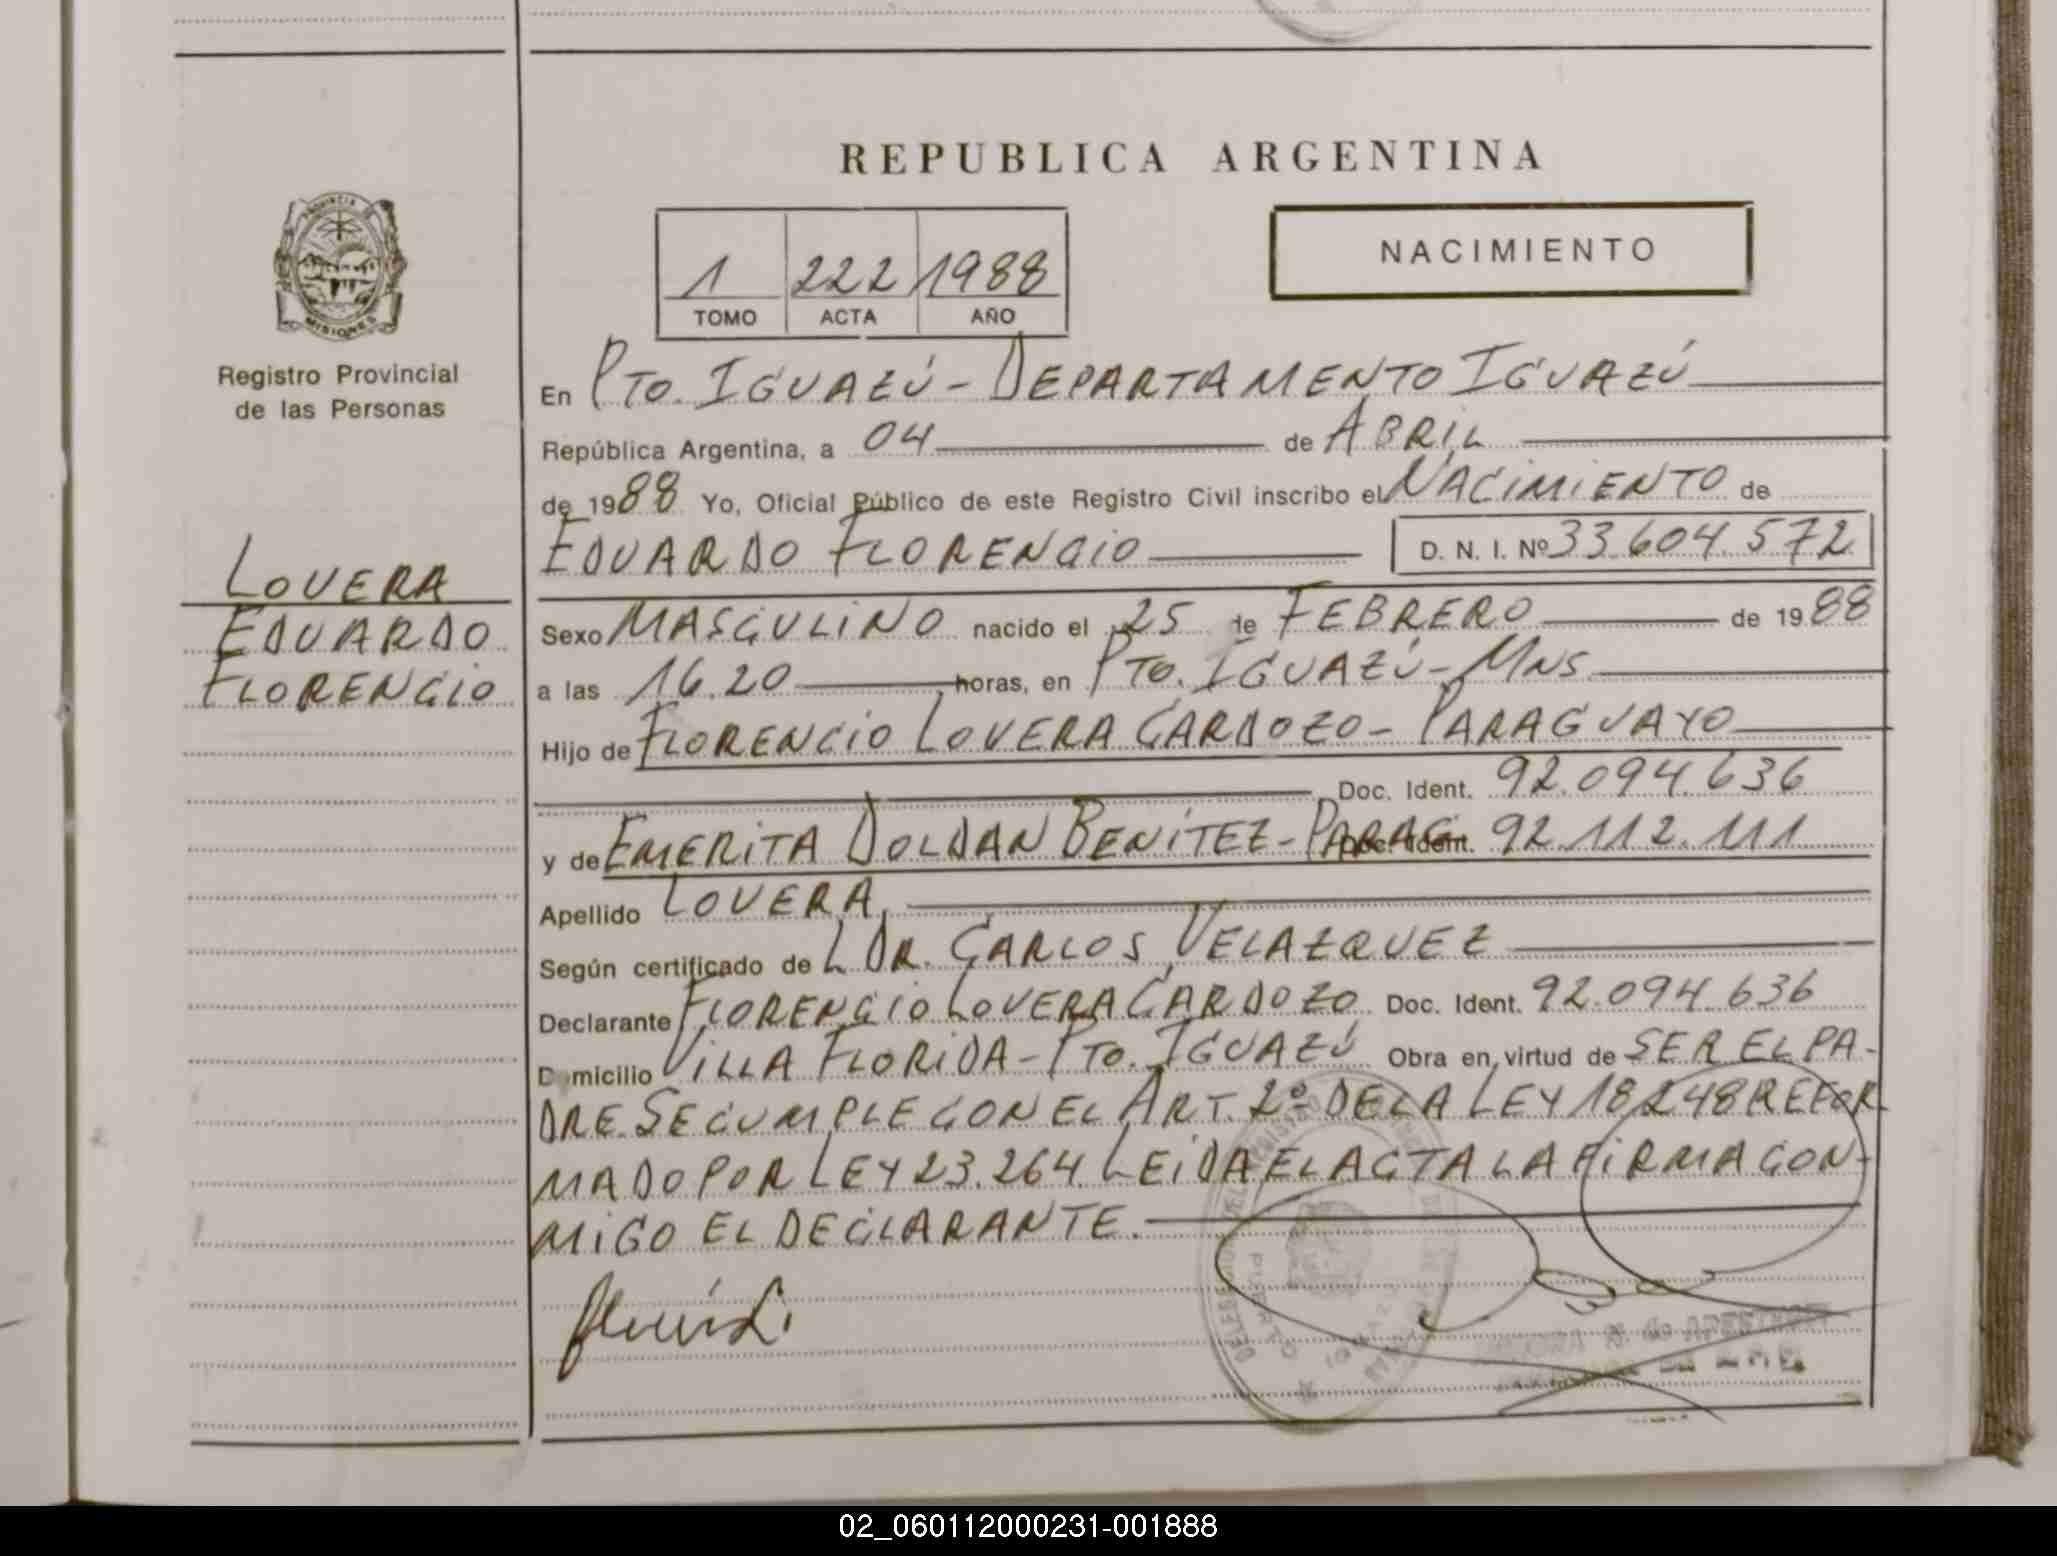 REPUBLICA ARGENTINA
PROVINCIA DE
MISIONES
Registro Provincial
de las Personas
1 222 1988
TOMO ACTA AÑO
NACIMIENTO
En PTO. IGUAZÚ - DEPARTAMENTO IGUAZÚ
República Argentina, a 04 de ABRIL
de 1988 Yo, Oficial Público de este Registro Civil inscribo el NACIMIENTO de
EDUARDO FLORENCIO D. N. I. Nº 33.604.572
LOVERA
EDUARDO
FLORENCIO
Sexo MASCULINO nacido el 25 de FEBRERO de 1988
a las 16.20 horas, en PTO. IGUAZÚ - MNS.
Hijo de FLORENCIO LOVERA CARDOZO - PARAGUAYO
Doc. Ident. 92.094.636
y de EMERITA DOLDAN BENÍTEZ - PARAG. Doc. Ident. 92.112.111
Apellido LOVERA
Según certificado de L DR. CARLOS VELAZQUEZ
Declarante FLORENCIO LOVERA CARDOZO Doc. Ident. 92.094.636
Domicilio VILLA FLORIDA - PTO. IGUAZÚ Obra en virtud de SER EL PA-
DRE. SE CUMPLE CON EL ART. 2º DE LA LEY 18248 REFOR
MADO POR LEY 23.264. LEIDA EL ACTA LA FIRMA CON-
MIGO EL DECLARANTE.
02_060112000231-001888